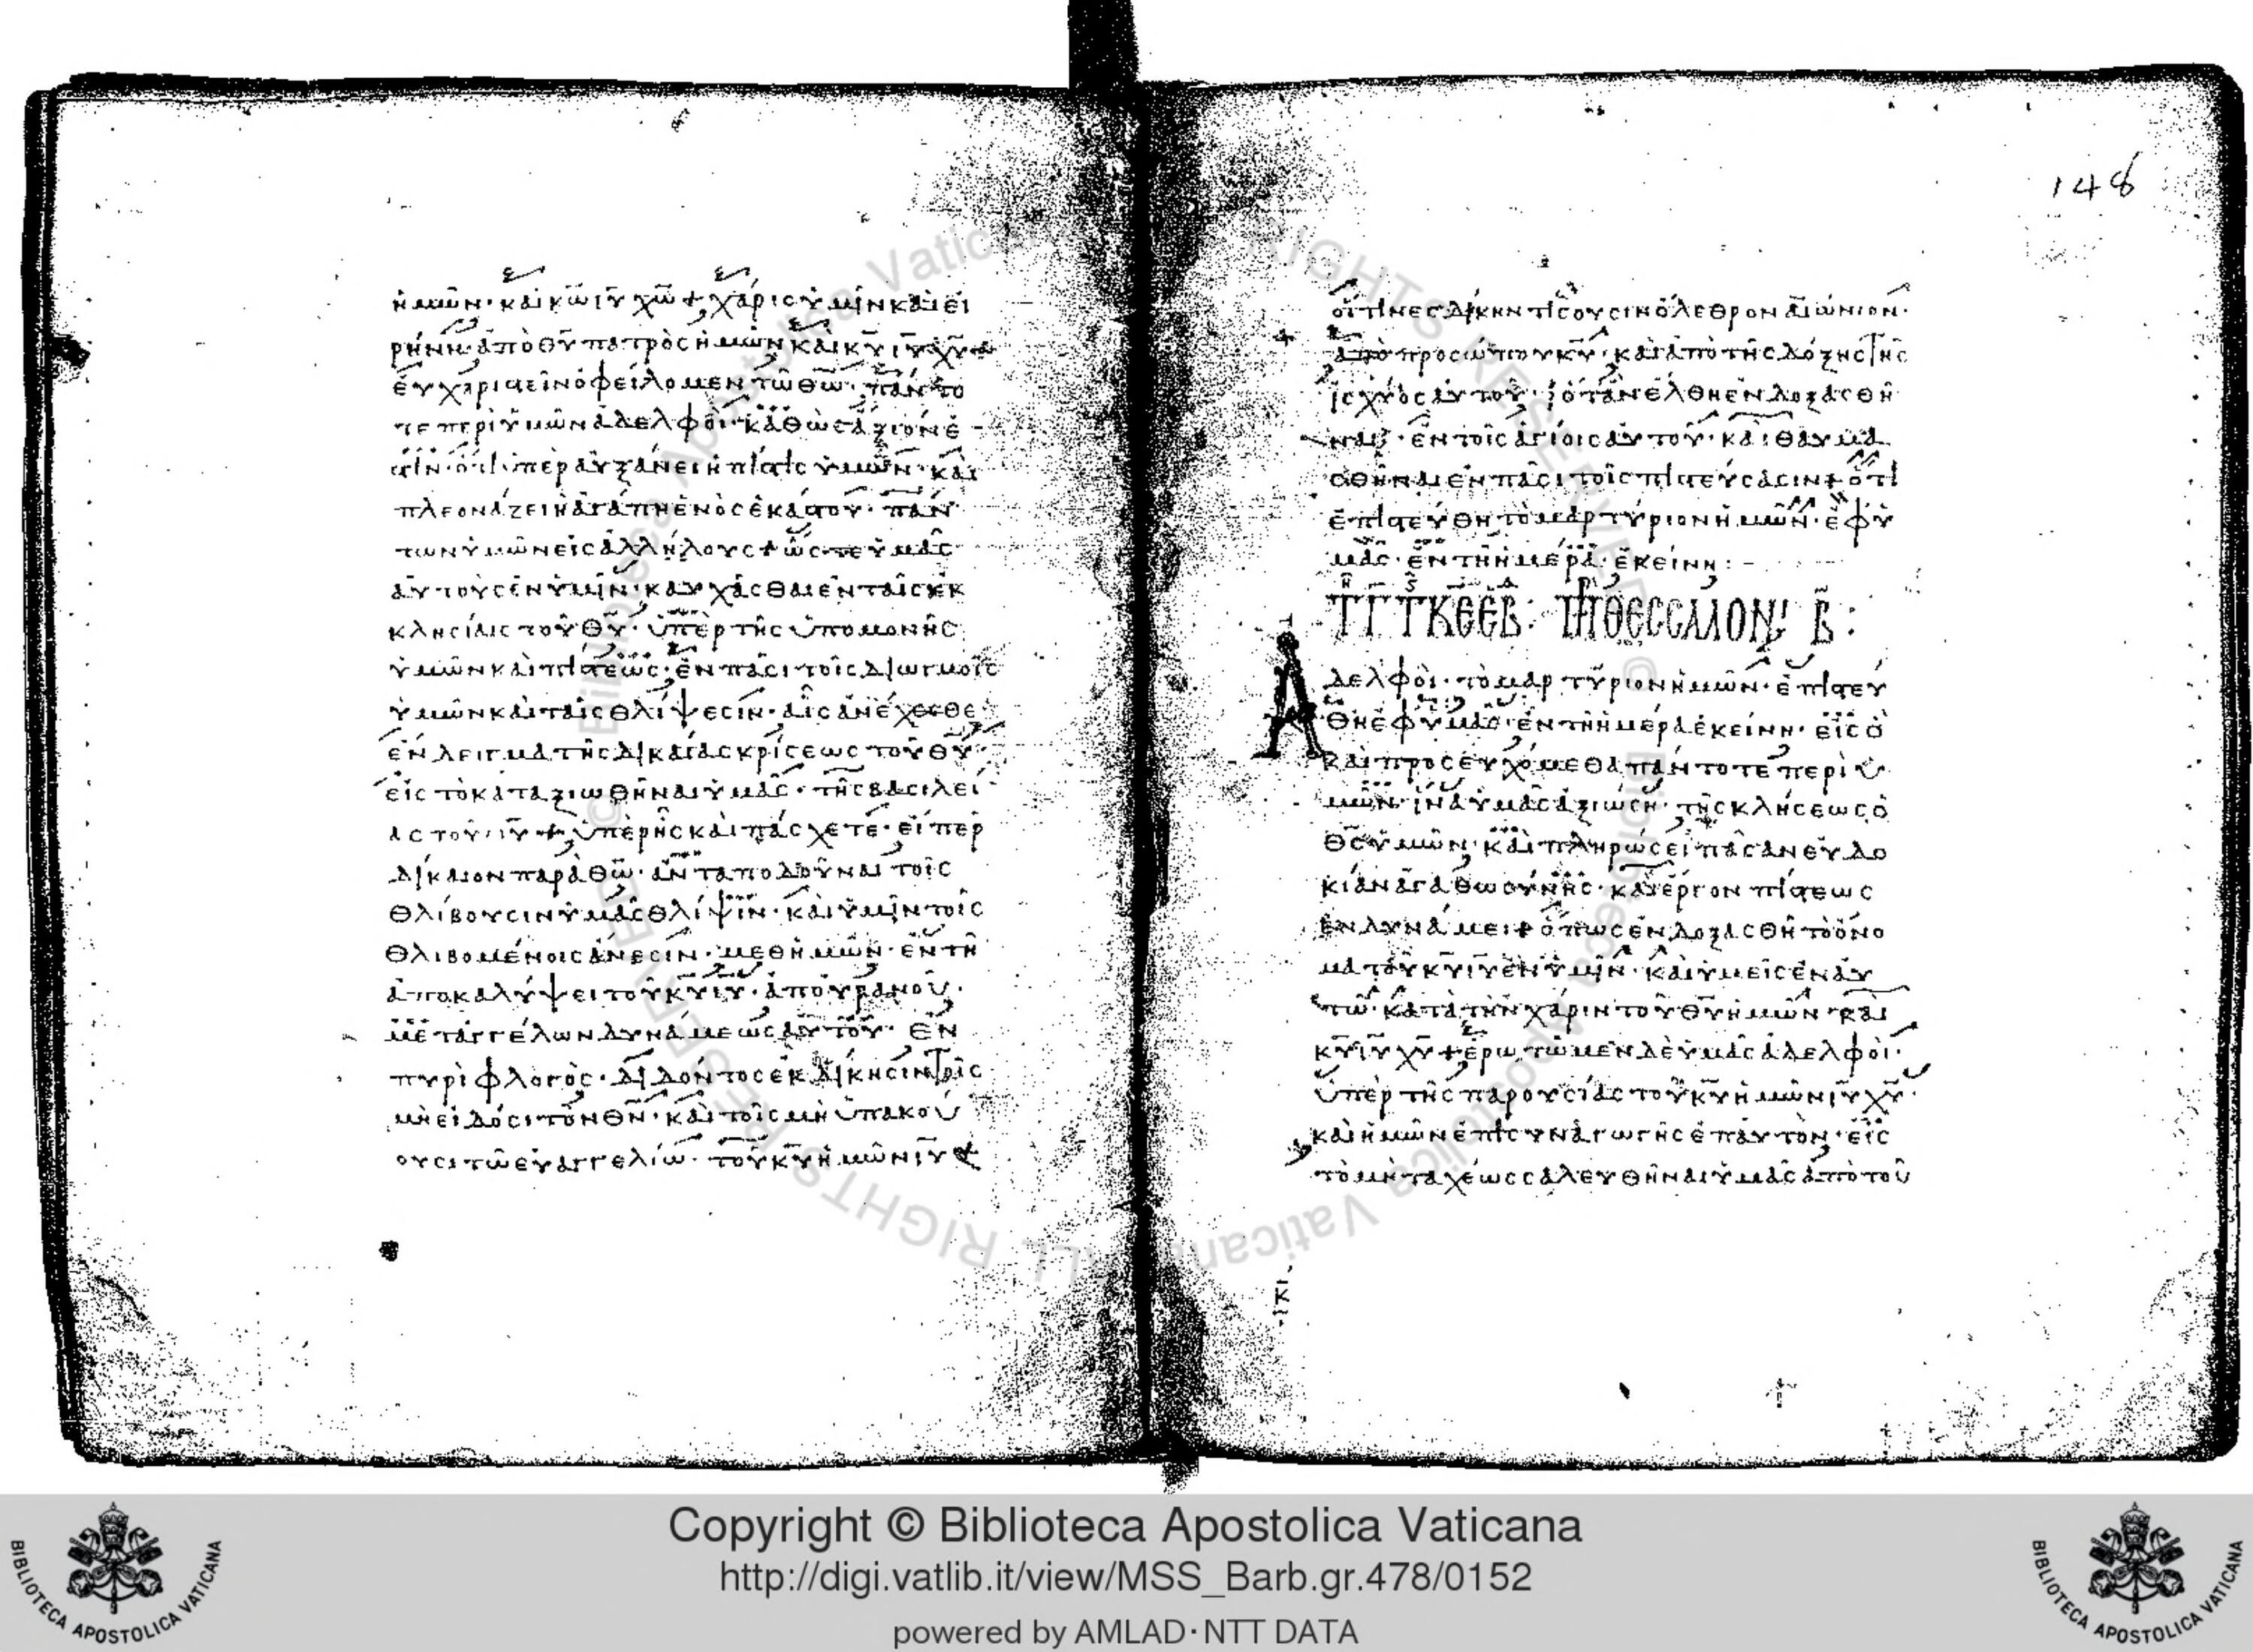 ἡμῶν· καὶ κω ιυ χω + χάρις ὑμῖν καὶ εἰ
ρήνη· ἀπὸ θυ πατρὸς ἡμῶν καὶ κυ ιυ χυ +
εὐχαριστεῖν ὀφείλομεν τῶ θω· πάντο
τε περὶ ὑμῶν ἀδελφοί· καθὼς ἄξιόν ἐ
στιν· ὅτι ὑπεραυξάνει ἡ πίστις ὑμῶν· καὶ
πλεονάζει ἡ ἀγάπη ἑνὸς ἑκάστου· πάν
των ὑμῶν εἰς ἀλλήλους + ὥστε ὑμᾶς
αὐτοὺς ἐν ὑμῖν· καυχᾶσθαι ἐν ταῖς ἐκ
κλησίαις τοῦ θυ· ὑπὲρ τῆς ὑπομονῆς
ὑμῶν καὶ πίστεως· ἐν πᾶσι τοῖς διωγμοῖς
ὑμῶν καὶ ταῖς θλίψεσιν· αἷς ἀνέχεσθε
ἔνδειγμα τῆς δικαίας κρίσεως τοῦ θυ·
εἰς τὸ καταξιωθῆναι ὑμᾶς· τῆς βασιλεί
ας τοῦ ιυ + ὑπὲρ ἧς καὶ πάσχετε· εἴπερ
δίκαιον παρὰ θω· ἀνταποδοῦναι τοῖς
θλίβουσιν ὑμᾶς θλίψιν· καὶ ὑμῖν τοῖς
θλιβομένοις ἄνεσιν· μεθ ἡμῶν· ἐν τῆ
ἀποκαλύψει τοῦ κυ ιυ· ἀπ οὐρανοῦ·
μετ ἀγγέλων δυνάμεως αὐτοῦ· ἐν
πυρὶ φλογός· διδόντος ἐκδίκησιν τοῖς
μὴ εἰδόσι τὸν θν· καὶ τοῖς μὴ ὑπακού
ουσι τῶ εὐαγγελίω· τοῦ κυ ἡμῶν ιυ +
148
οἵτινες δίκην τίσουσιν ὄλεθρον αἰώνιον·
ἀπὸ προσώπου κυ· καὶ ἀπὸ τῆς δόξης τῆς
ἰσχύος αὐτοῦ· ὅταν ἔλθη ἐνδοξασθῆ
ναι· ἐν τοῖς ἁγίοις αὐτοῦ· καὶ θαυμα
σθῆναι ἐν πᾶσι τοῖς πιστεύσασιν + ὅτι
ἐπιστεύθη τὸ μαρτύριον ἡμῶν· ἐφ ὑ
μᾶς· ἐν τῆ ἡμέρα ἐκείνη :
Ἀ
δελφοί· τὸ μαρτύριον ἡμῶν· ἐπιστεύ
θη ἐφ ὑμᾶς· ἐν τῆ ἡμέρα ἐκείνη· εἰς ὃ
καὶ προσευχόμεθα πάντοτε περὶ ὑ
μῶν· ἵνα ὑμᾶς ἀξιώση· τῆς κλήσεως ὁ
θς ὑμῶν· καὶ πληρώσει πᾶσαν εὐδο
κίαν ἀγαθωσύνης· καὶ ἔργον πίστεως
ἐν δυνάμει + ὅπως ἐνδοξασθῆ τὸ ὄνο
μα τοῦ κυ ιυ ἐν ὑμῖν· καὶ ὑμεῖς ἐν αὐ
τῶ· κατὰ τὴν χάριν τοῦ θυ ἡμῶν· καὶ
κυ ιυ χυ + ἐρωτῶμεν δὲ ὑμᾶς ἀδελφοί·
ὑπὲρ τῆς παρουσίας τοῦ κυ ἡμῶν ιυ χυ·
καὶ ἡμῶν ἐπισυναγωγῆς ἐπ αὐτόν· εἰς
τὸ μὴ ταχέως σαλευθῆναι ὑμᾶς ἀπὸ τοῦ
Copyright © Biblioteca Apostolica Vaticana
http://digi.vatlib.it/view/MSS_Barb.gr.478/0152
powered by AMLAD·NTT DATA
BIBLIOTECA APOSTOLICA VATICANA
BIBLIOTECA APOSTOLICA VATICANA